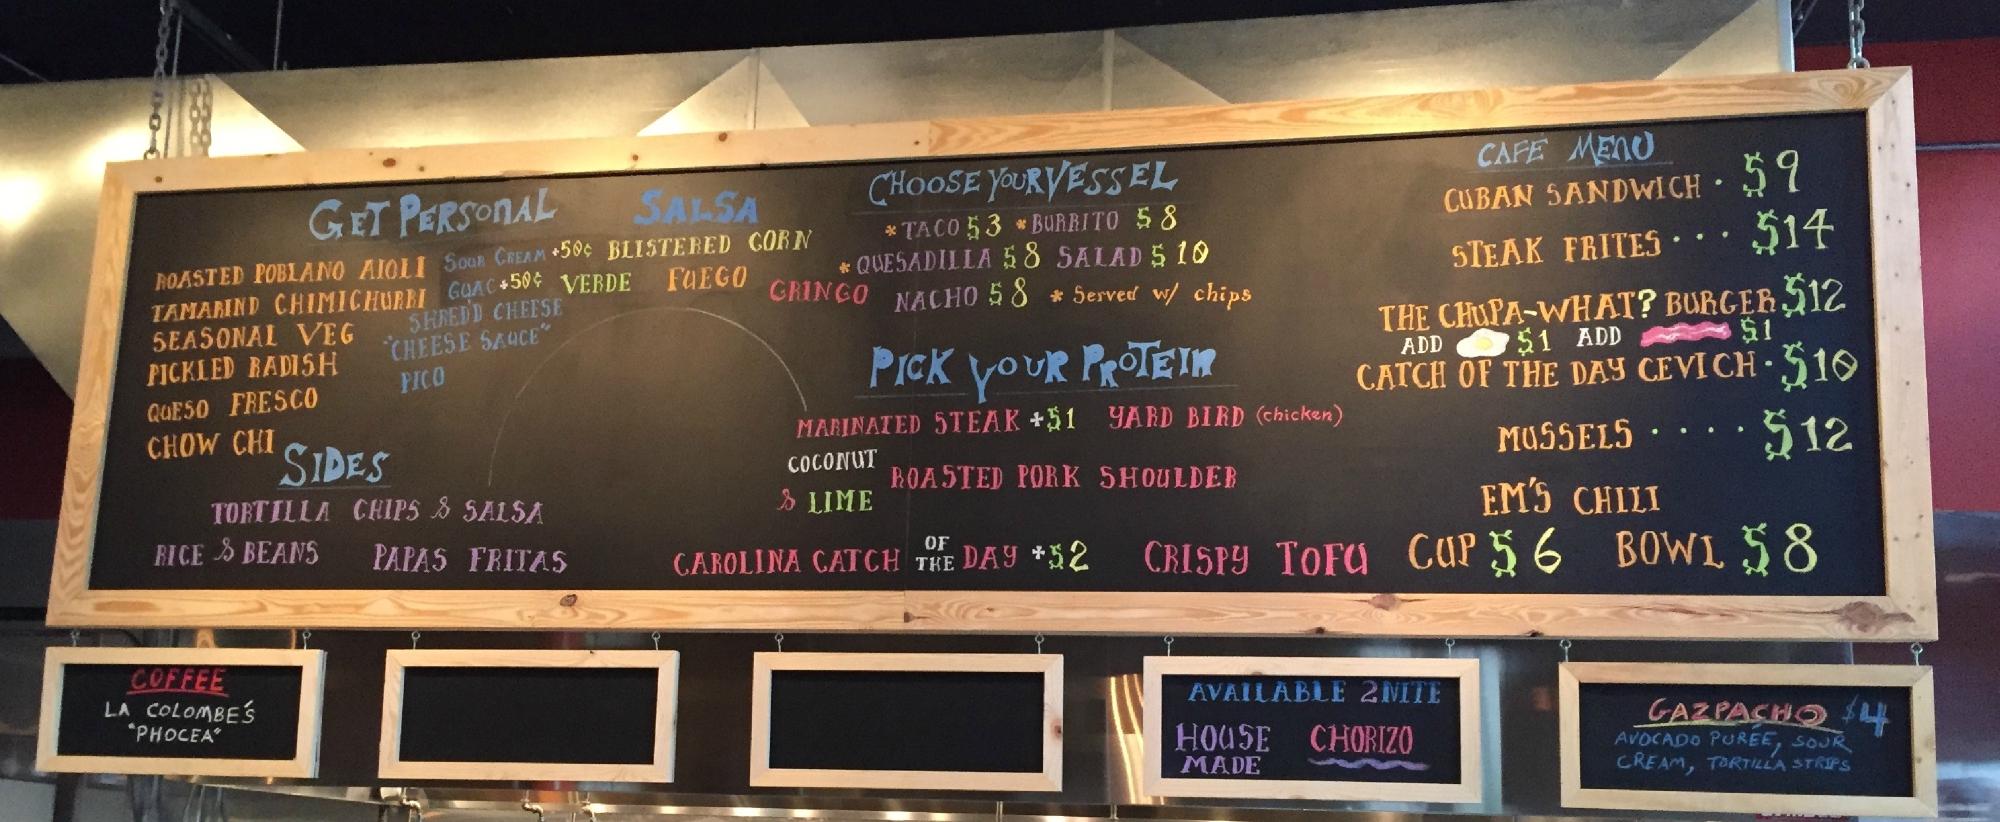 GET PERSONAL
ROASTED POBLANO AIOLI
TAMARIND CHIMICHURRI
SEASONAL VEG
PICKLED RADISH
QUESO FRESCO
CHOW CHI
SOUR CREAM +50¢
GUAC +50¢
SHRED'D CHEESE
"CHEESE SAUCE"
PICO
SALSA
BLISTERED CORN
VERDE FUEGO GRINGO
SIDES
TORTILLA CHIPS & SALSA
RICE & BEANS PAPAS FRITAS
CHOOSE YOUR VESSEL
*TACO $3 *BURRITO $8
*QUESADILLA $8 SALAD $10
NACHO $8 * Served w/ chips
PICK YOUR PROTEIN
MARINATED STEAK +$1 YARD BIRD (chicken)
COCONUT & LIME ROASTED PORK SHOULDER
CAROLINA CATCH OF THE DAY +$2 CRISPY TOFU
CAFÉ MENU
CUBAN SANDWICH · $9
STEAK FRITES · · · $14
THE CHUPA-WHAT? BURGER $12
ADD $1 ADD $1
CATCH OF THE DAY CEVICH · $10
MUSSELS · · · · $12
EM'S CHILI
CUP $6 BOWL $8
COFFEE
LA COLOMBE'S
"PHOCEA"
AVAILABLE 2NITE
HOUSE MADE CHORIZO
GAZPACHO $4
AVOCADO PURÉE, SOUR
CREAM, TORTILLA STRIPS